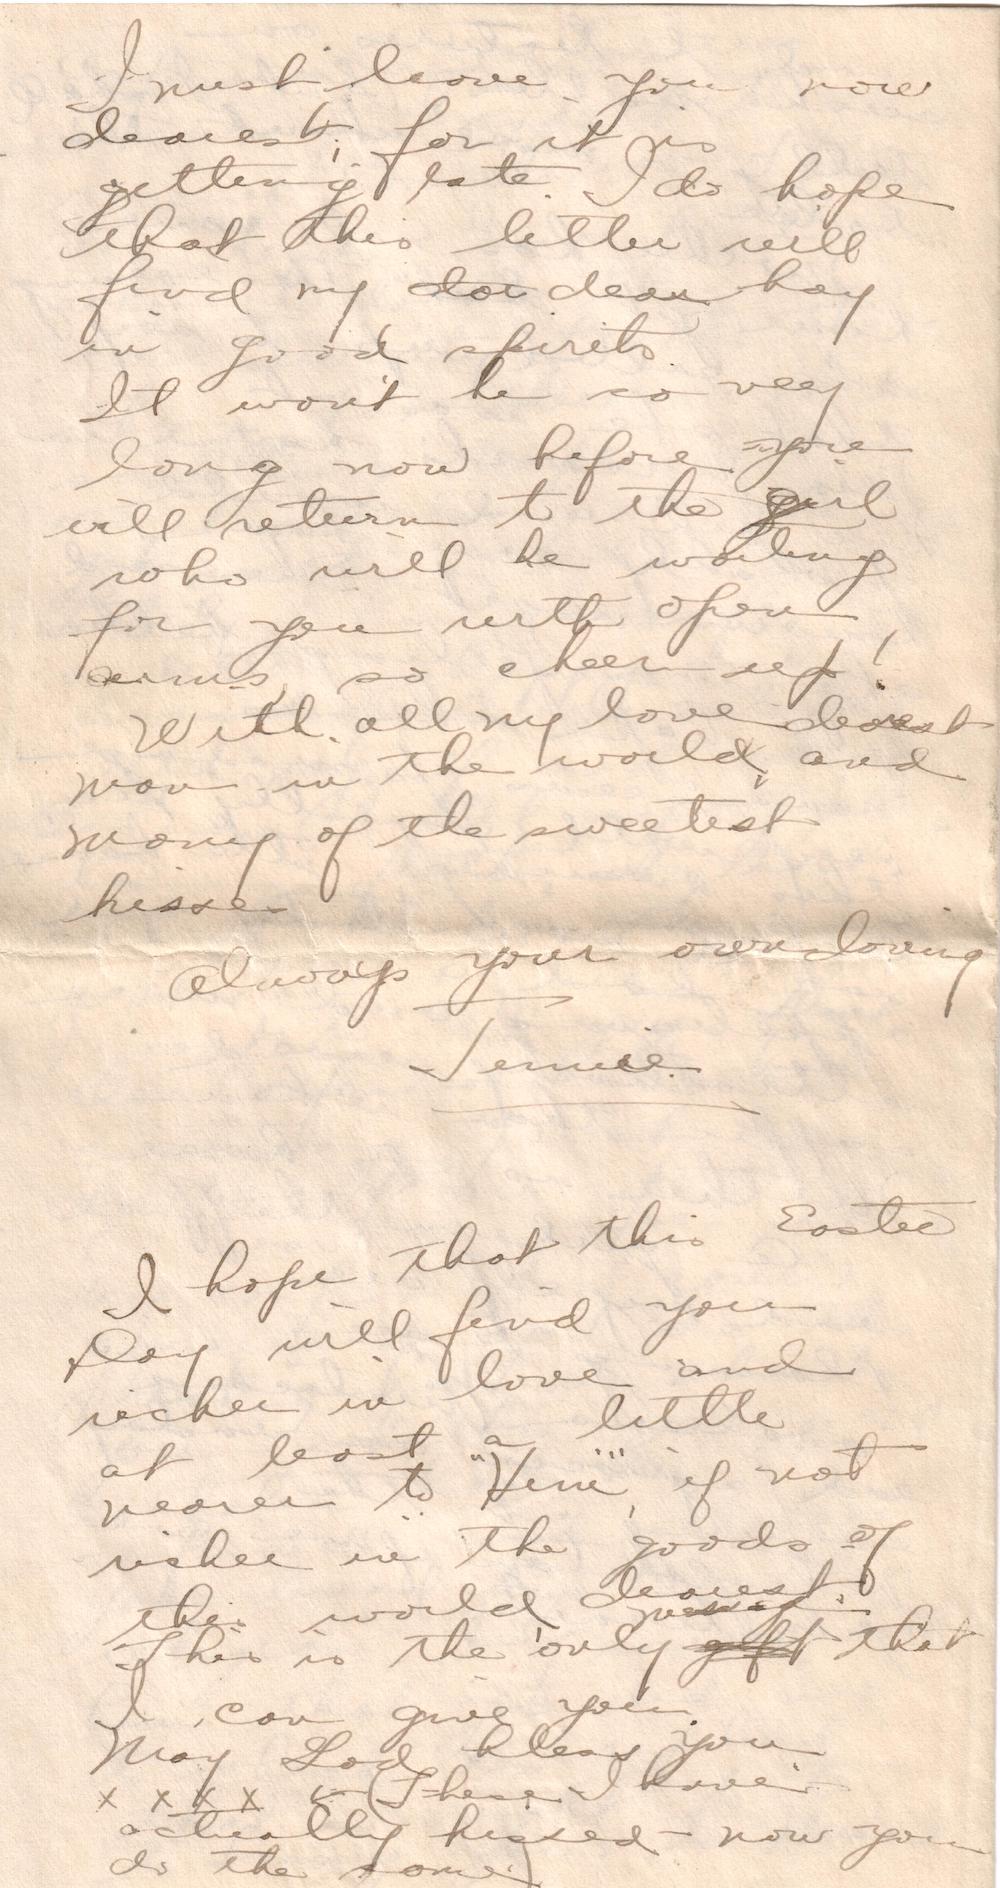 I must leave you now
dearest, for it is
getting late. I do hope
that this letter will
find my dear boy
in good spirits.
It won't be so very
long now before you
will return to the girl
who will be waiting
for you with open
arms, so cheer up!
With all my love dearest
man in the world, and
many of the sweetest
kisses
Always your own loving
Jennie.
I hope that this Easter
Day will find you
richer in love and
at least a little
nearer to "Him", if not
richer in the goods of
this world dearest.
This is the only gift that
I can give you.
May God bless you
x x x x x (These I have
actually kissed - now you
do the same)